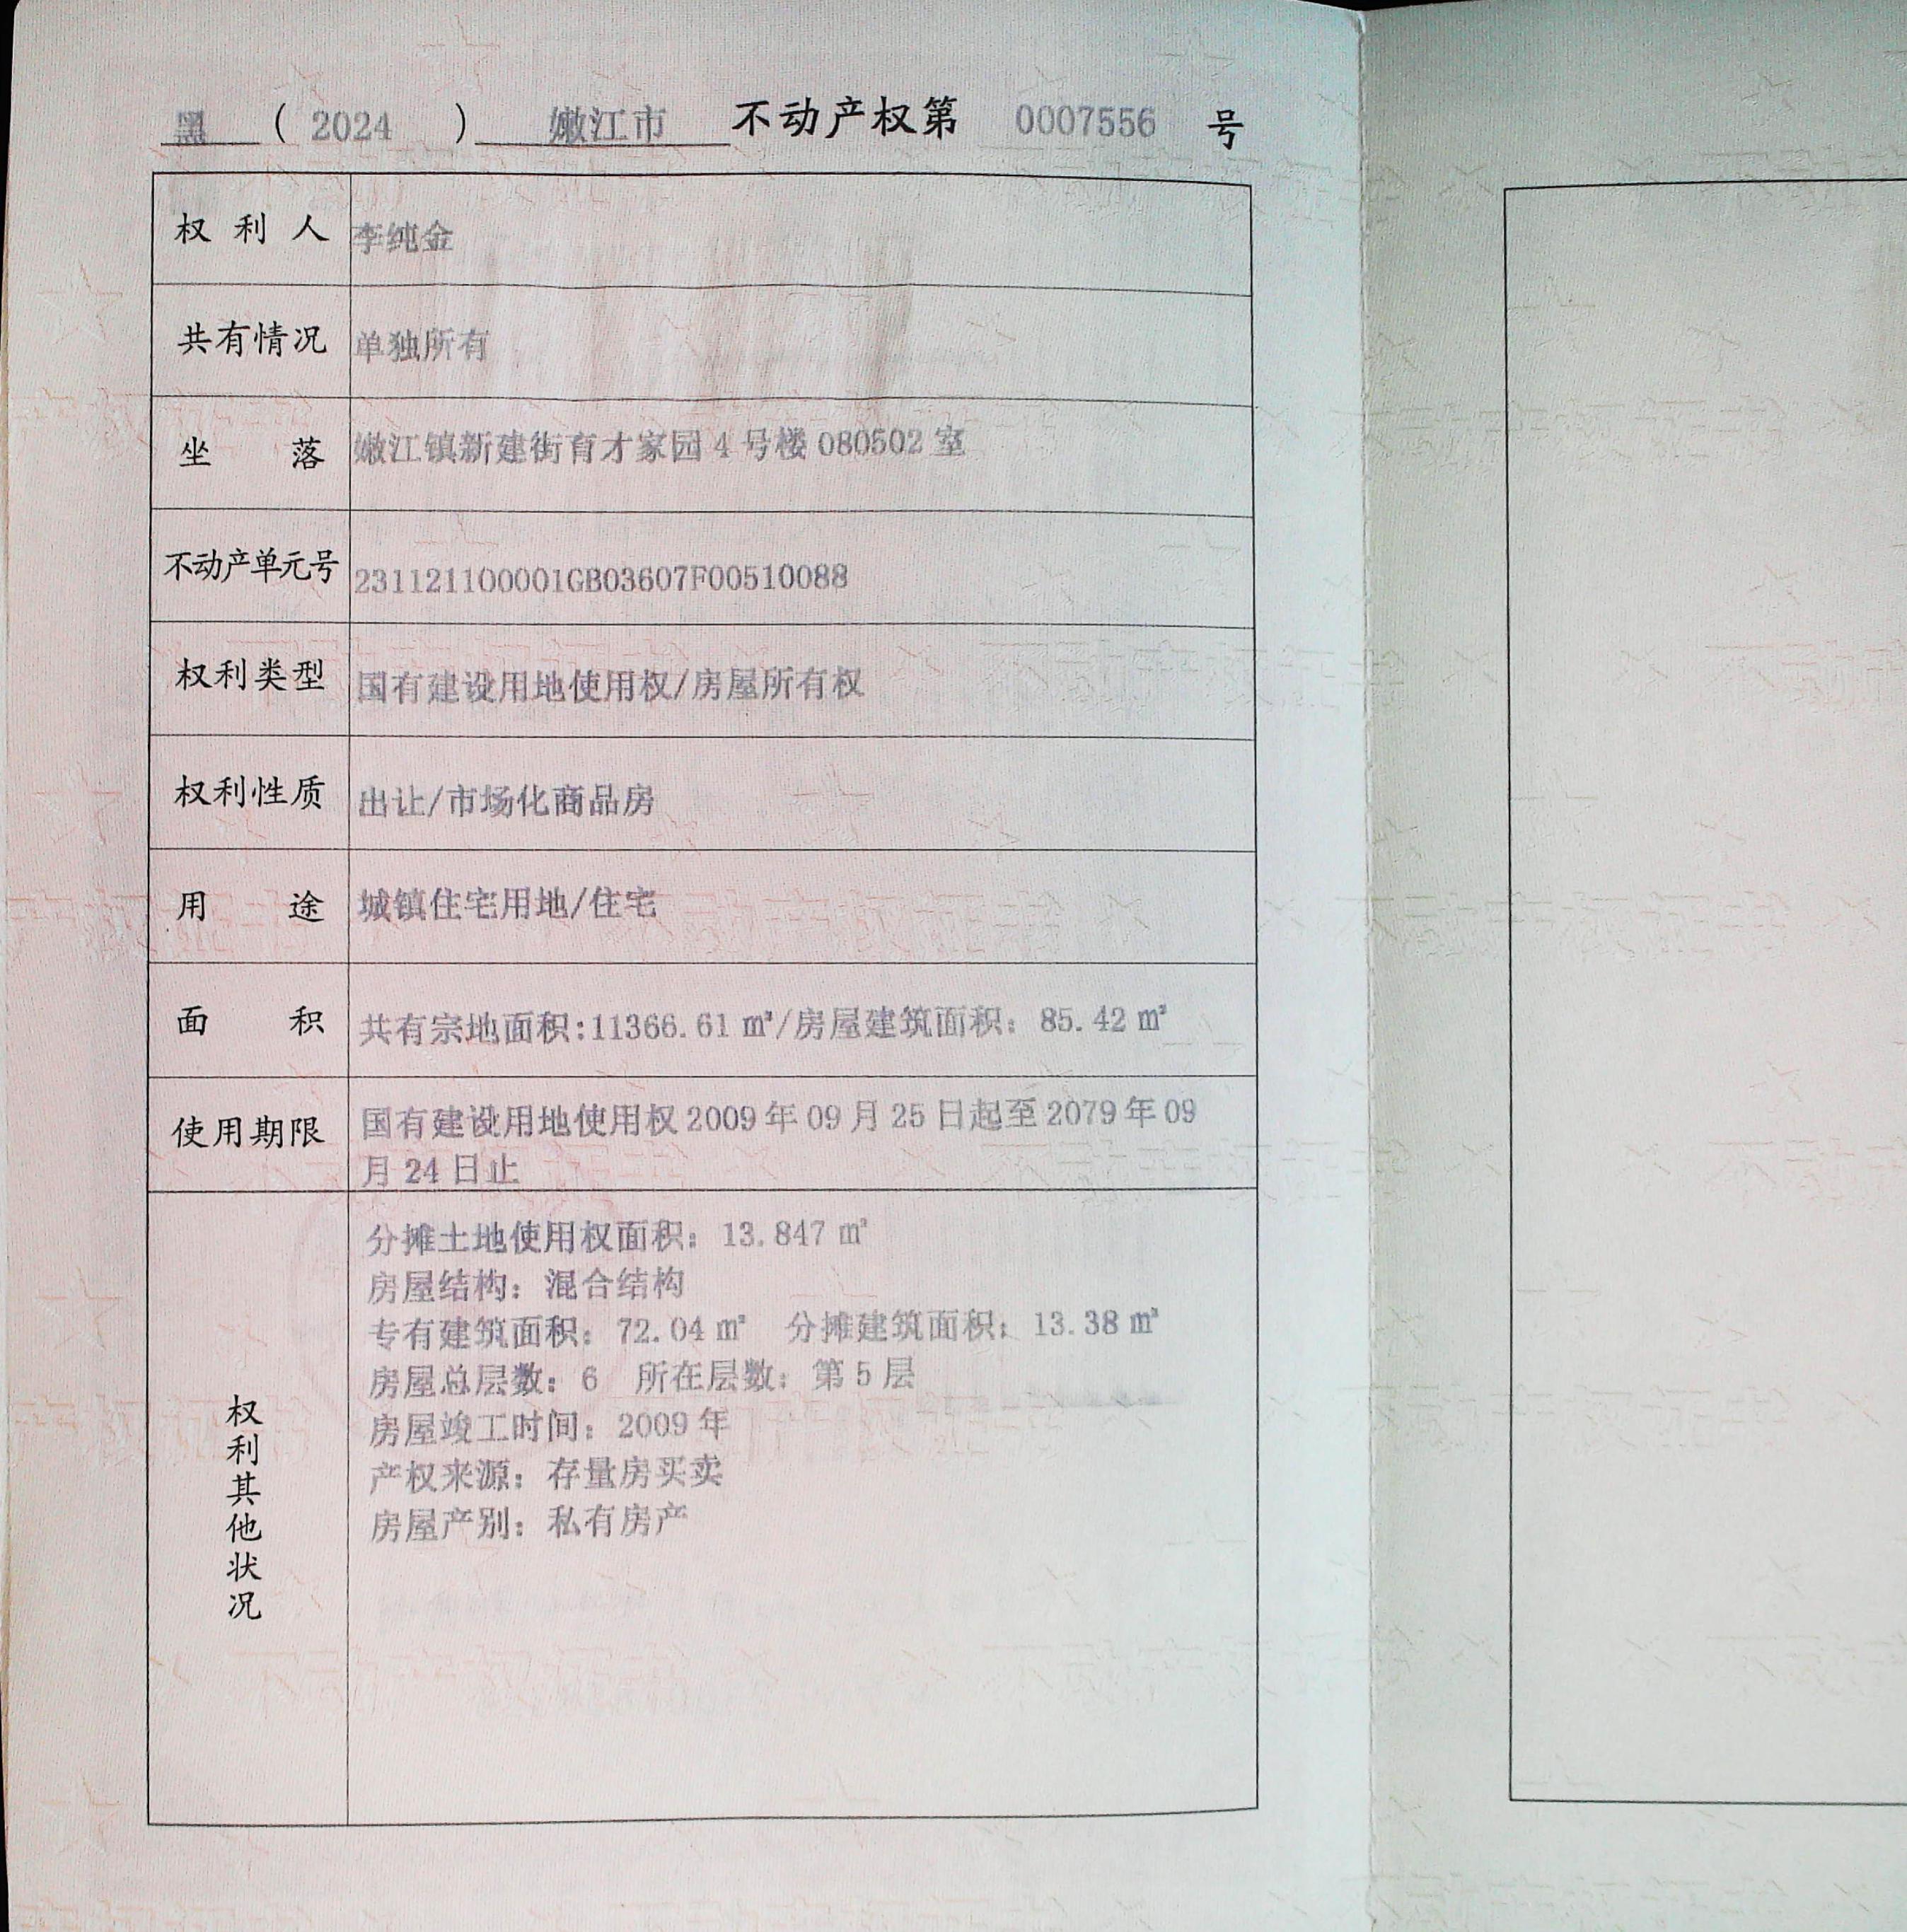 黑 ( 2024 ) 嫩江市 不动产权第 0007556 号
权利人 李纯金
共有情况 单独所有
坐落 嫩江镇新建街育才家园 4 号楼 080502 室
不动产单元号 231121100001GB03607F00510088
权利类型 国有建设用地使用权/房屋所有权
权利性质 出让/市场化商品房
用途 城镇住宅用地/住宅
面积 共有宗地面积:11366.61 ㎡/房屋建筑面积：85.42 ㎡
使用期限 国有建设用地使用权 2009 年 09 月 25 日起至 2079 年 09
月 24 日止
权利其他状况
分摊土地使用权面积：13.847 ㎡
房屋结构：混合结构
专有建筑面积：72.04 ㎡ 分摊建筑面积：13.38 ㎡
房屋总层数：6 所在层数：第 5 层
房屋竣工时间：2009 年
产权来源：存量房买卖
房屋产别：私有房产